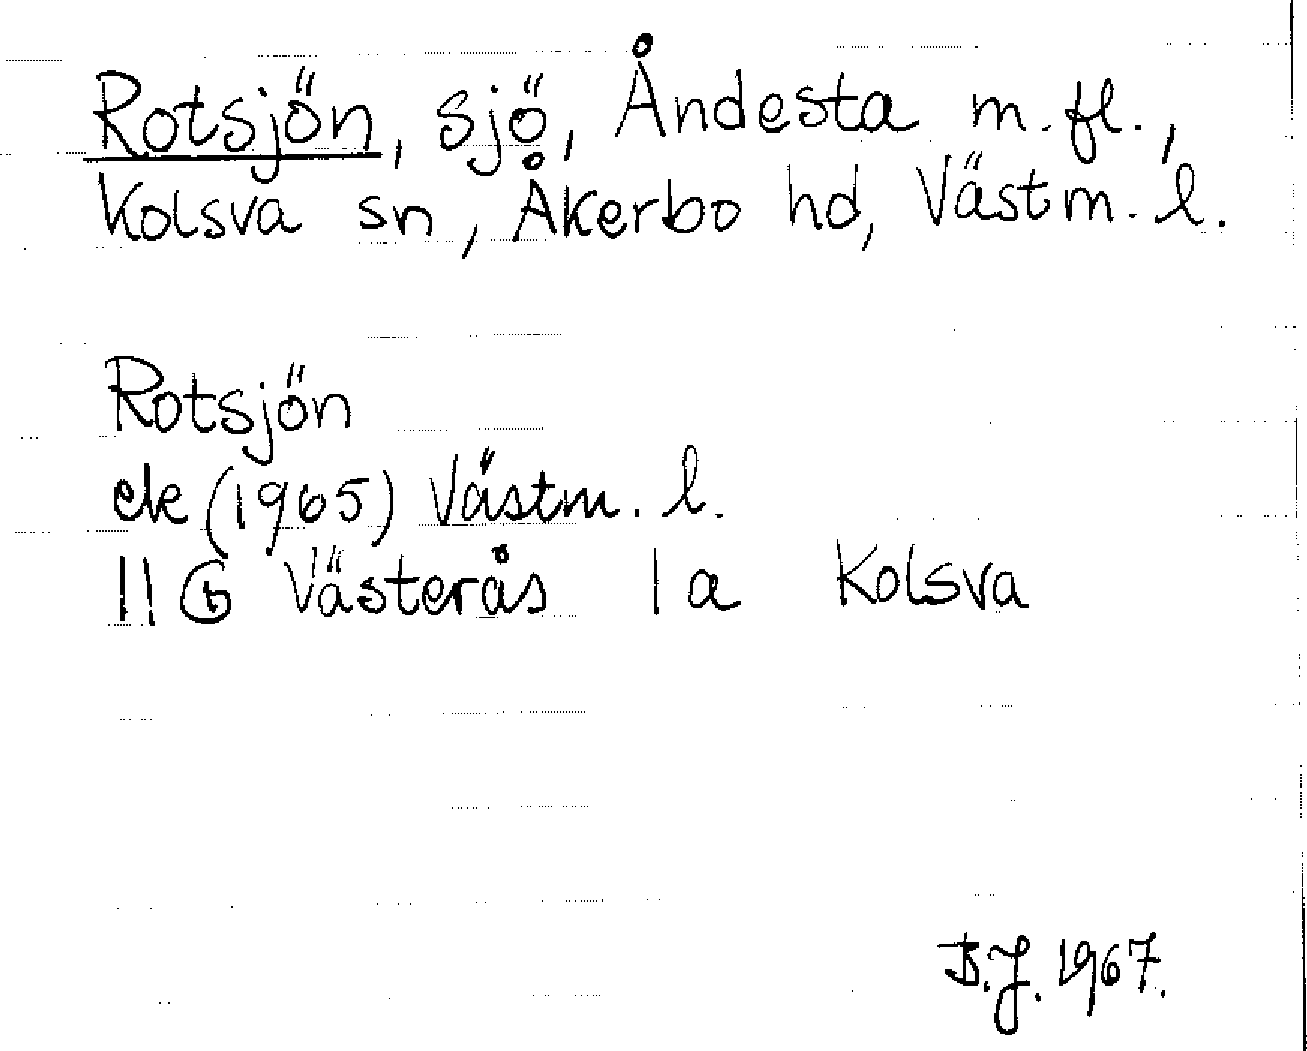 Rotsjön, sjö, Åndesta m.fl.,
Kolsva sn, Åkerbo hd, Västm. l.
Rotsjön
ek (1965) Västm. l.
11 G Västerås 1 a Kolsva
B.J. 1967.